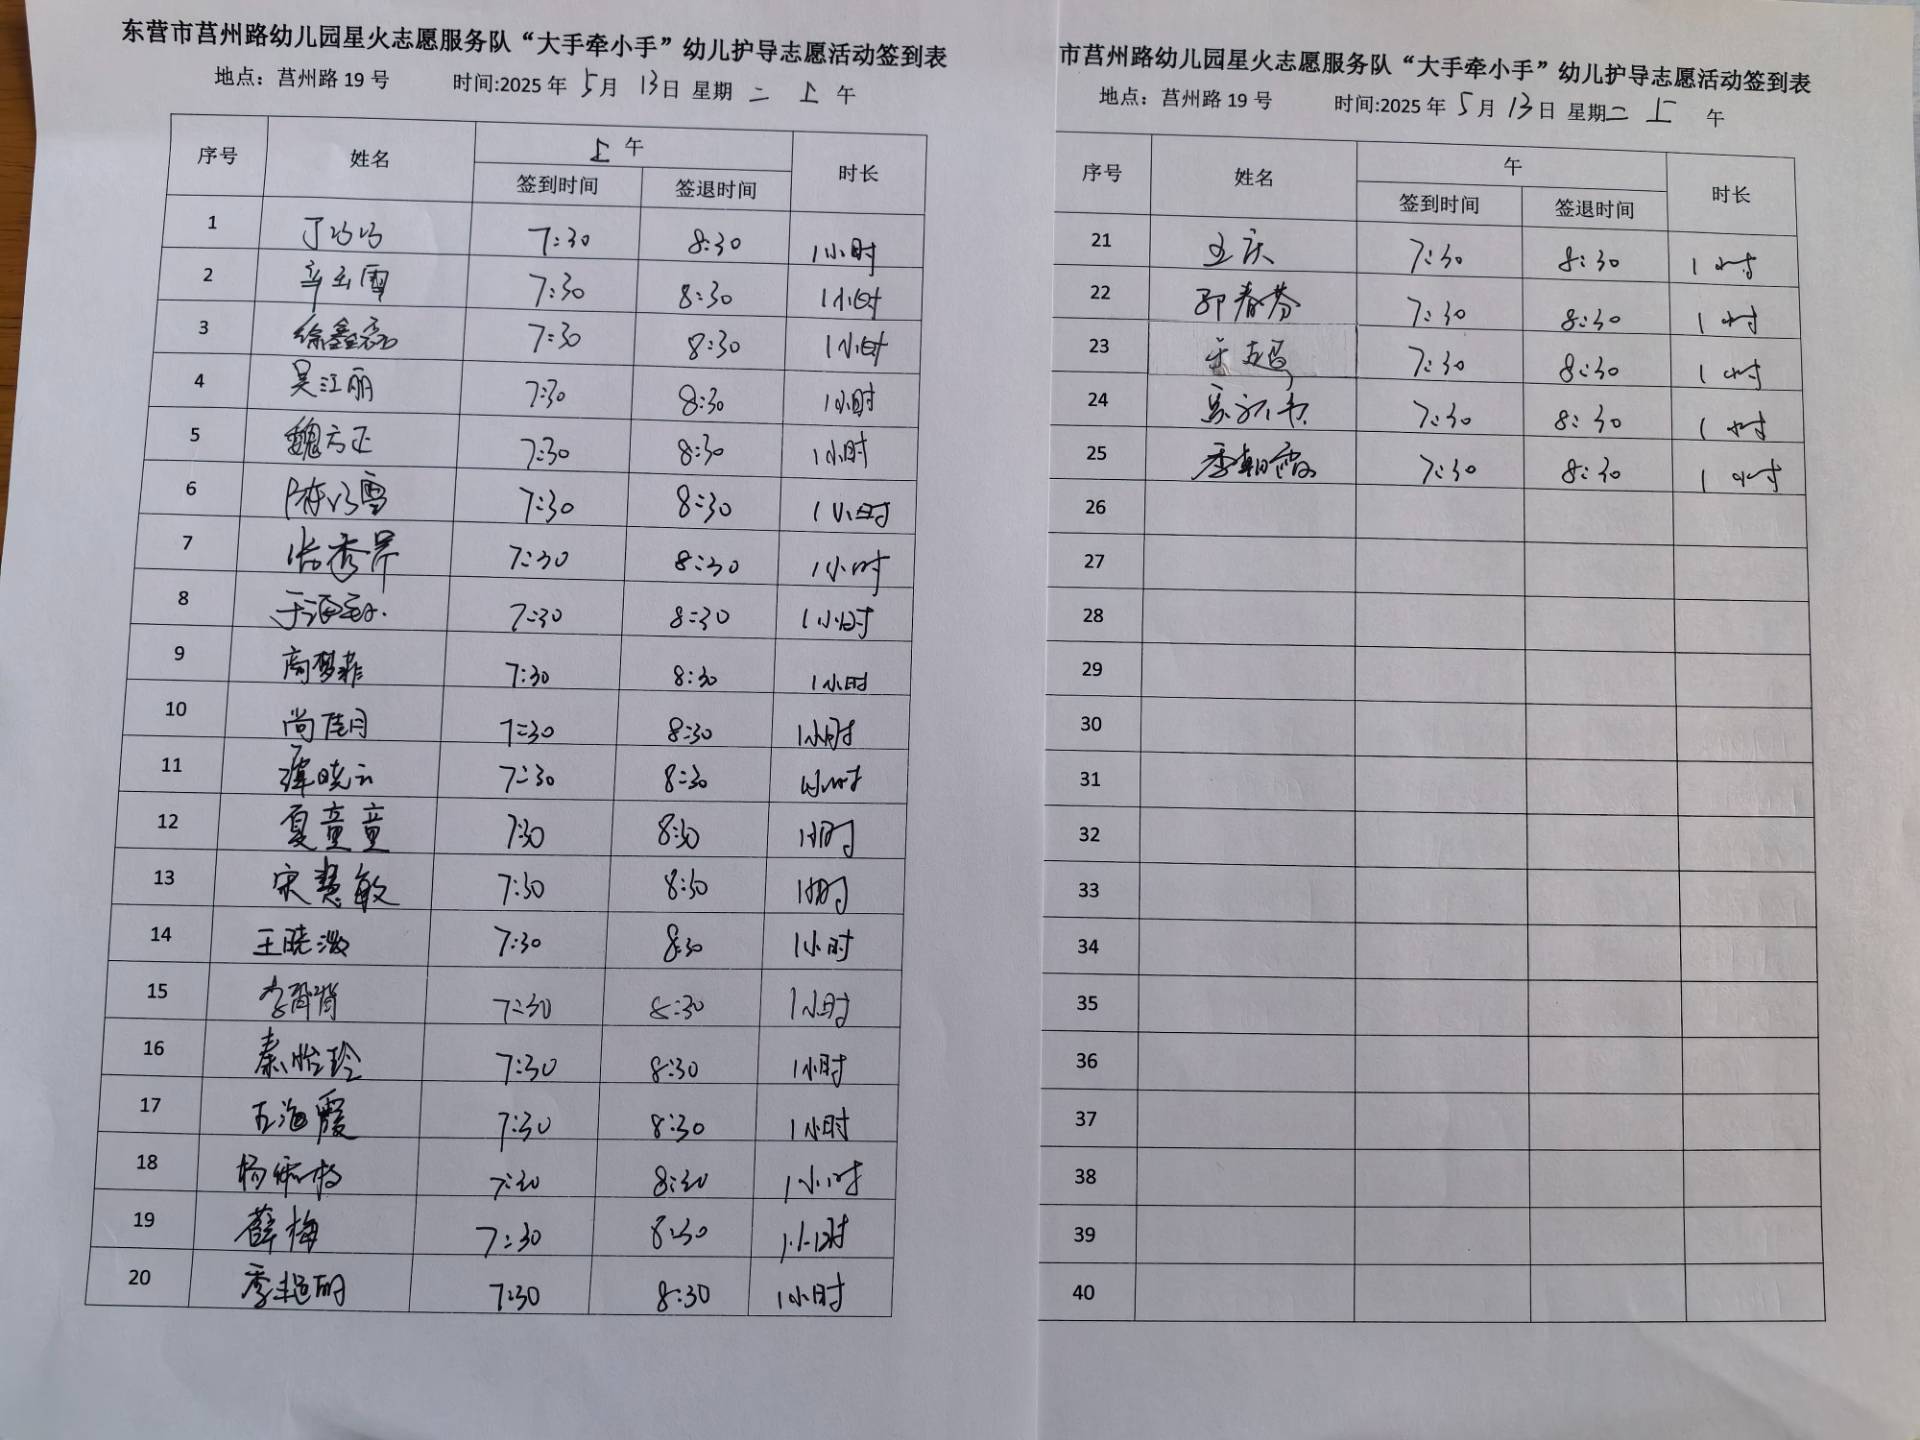 东营市莒州路幼儿园星火志愿服务队“大手牵小手”幼儿护导志愿活动签到表
地点：莒州路 19 号 时间:2025 年 5月 13日 星期 二 上 午
序号 姓名 上 午 时长
签到时间 签退时间
1 丁巧巧 7:30 8:30 1小时
2 辛玉雪 7:30 8:30 1小时
3 徐鑫磊 7:30 8:30 1小时
4 吴江丽 7:30 8:30 1小时
5 魏方正 7:30 8:30 1小时
6 7:30 8:30 1小时
7 张秀芹 7:30 8:30 1小时
8 7:30 8:30 1小时
9 高梦菲 7:30 8:30 1小时
10 尚佳月 7:30 8:30 1小时
11 谭晓云 7:30 8:30 1小时
12 夏童童 7:30 8:30 1小时
13 宋慧敏 7:30 8:30 1小时
14 王晓微 7:30 8:30 1小时
15 7:30 8:30 1小时
16 秦怡玲 7:30 8:30 1小时
17 古海霞 7:30 8:30 1小时
18 7:30 8:30 1小时
19 薛梅 7:30 8:30 1小时
20 季超明 7:30 8:30 1小时
市莒州路幼儿园星火志愿服务队“大手牵小手”幼儿护导志愿活动签到表
地点：莒州路 19 号 时间:2025 年 5月 13日 星期二 上 午
序号 姓名 午 时长
签到时间 签退时间
21 7:30 8:30 1 小时
22 邵春芬 7:30 8:30 1 小时
23 7:30 8:30 1 小时
24 7:30 8:30 1 小时
25 季朝霞 7:30 8:30 1 小时
26
27
28
29
30
31
32
33
34
35
36
37
38
39
40